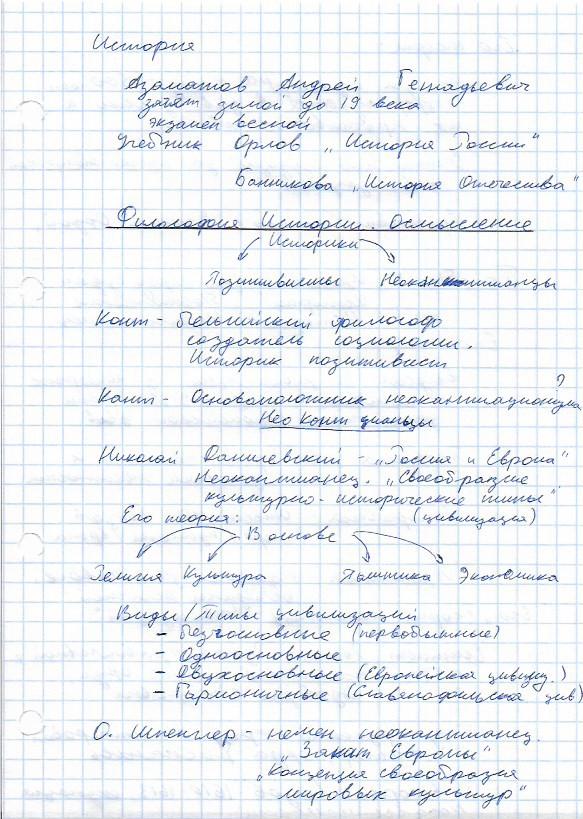 История
Азаматов Андрей Генадьевич
зачёт зимой до 19 века
экзамен весной
Учебник Орлов „История России"
Банникова „История Отечества"
Философия Истории. Осмысление
Историки
Позитивисты Неокантианцы
Конт - Бельгийский философ
создатель социологии.
Историк позитивист
?
Кант - Основоположник неокантиационизма
Нео Кант ианьцы
Николай Данилевский - „Россия и Европа"
Неокантианец. „Своеобразие
культурно-исторические типы"
Его теория: (цивилизация)
В основе
Религия Культура Политика Экономика
Виды / Типы цивилизаций
- Безъосновные (первобытные)
- Одноосновные
- Двухосновные (Европейская цивилиз.)
- Гармоничные (Славенофильская цив)
О. Шпенглер - немец неокантианец.
„Закат Европы"
„Концепция своеобразия
мировых культур"